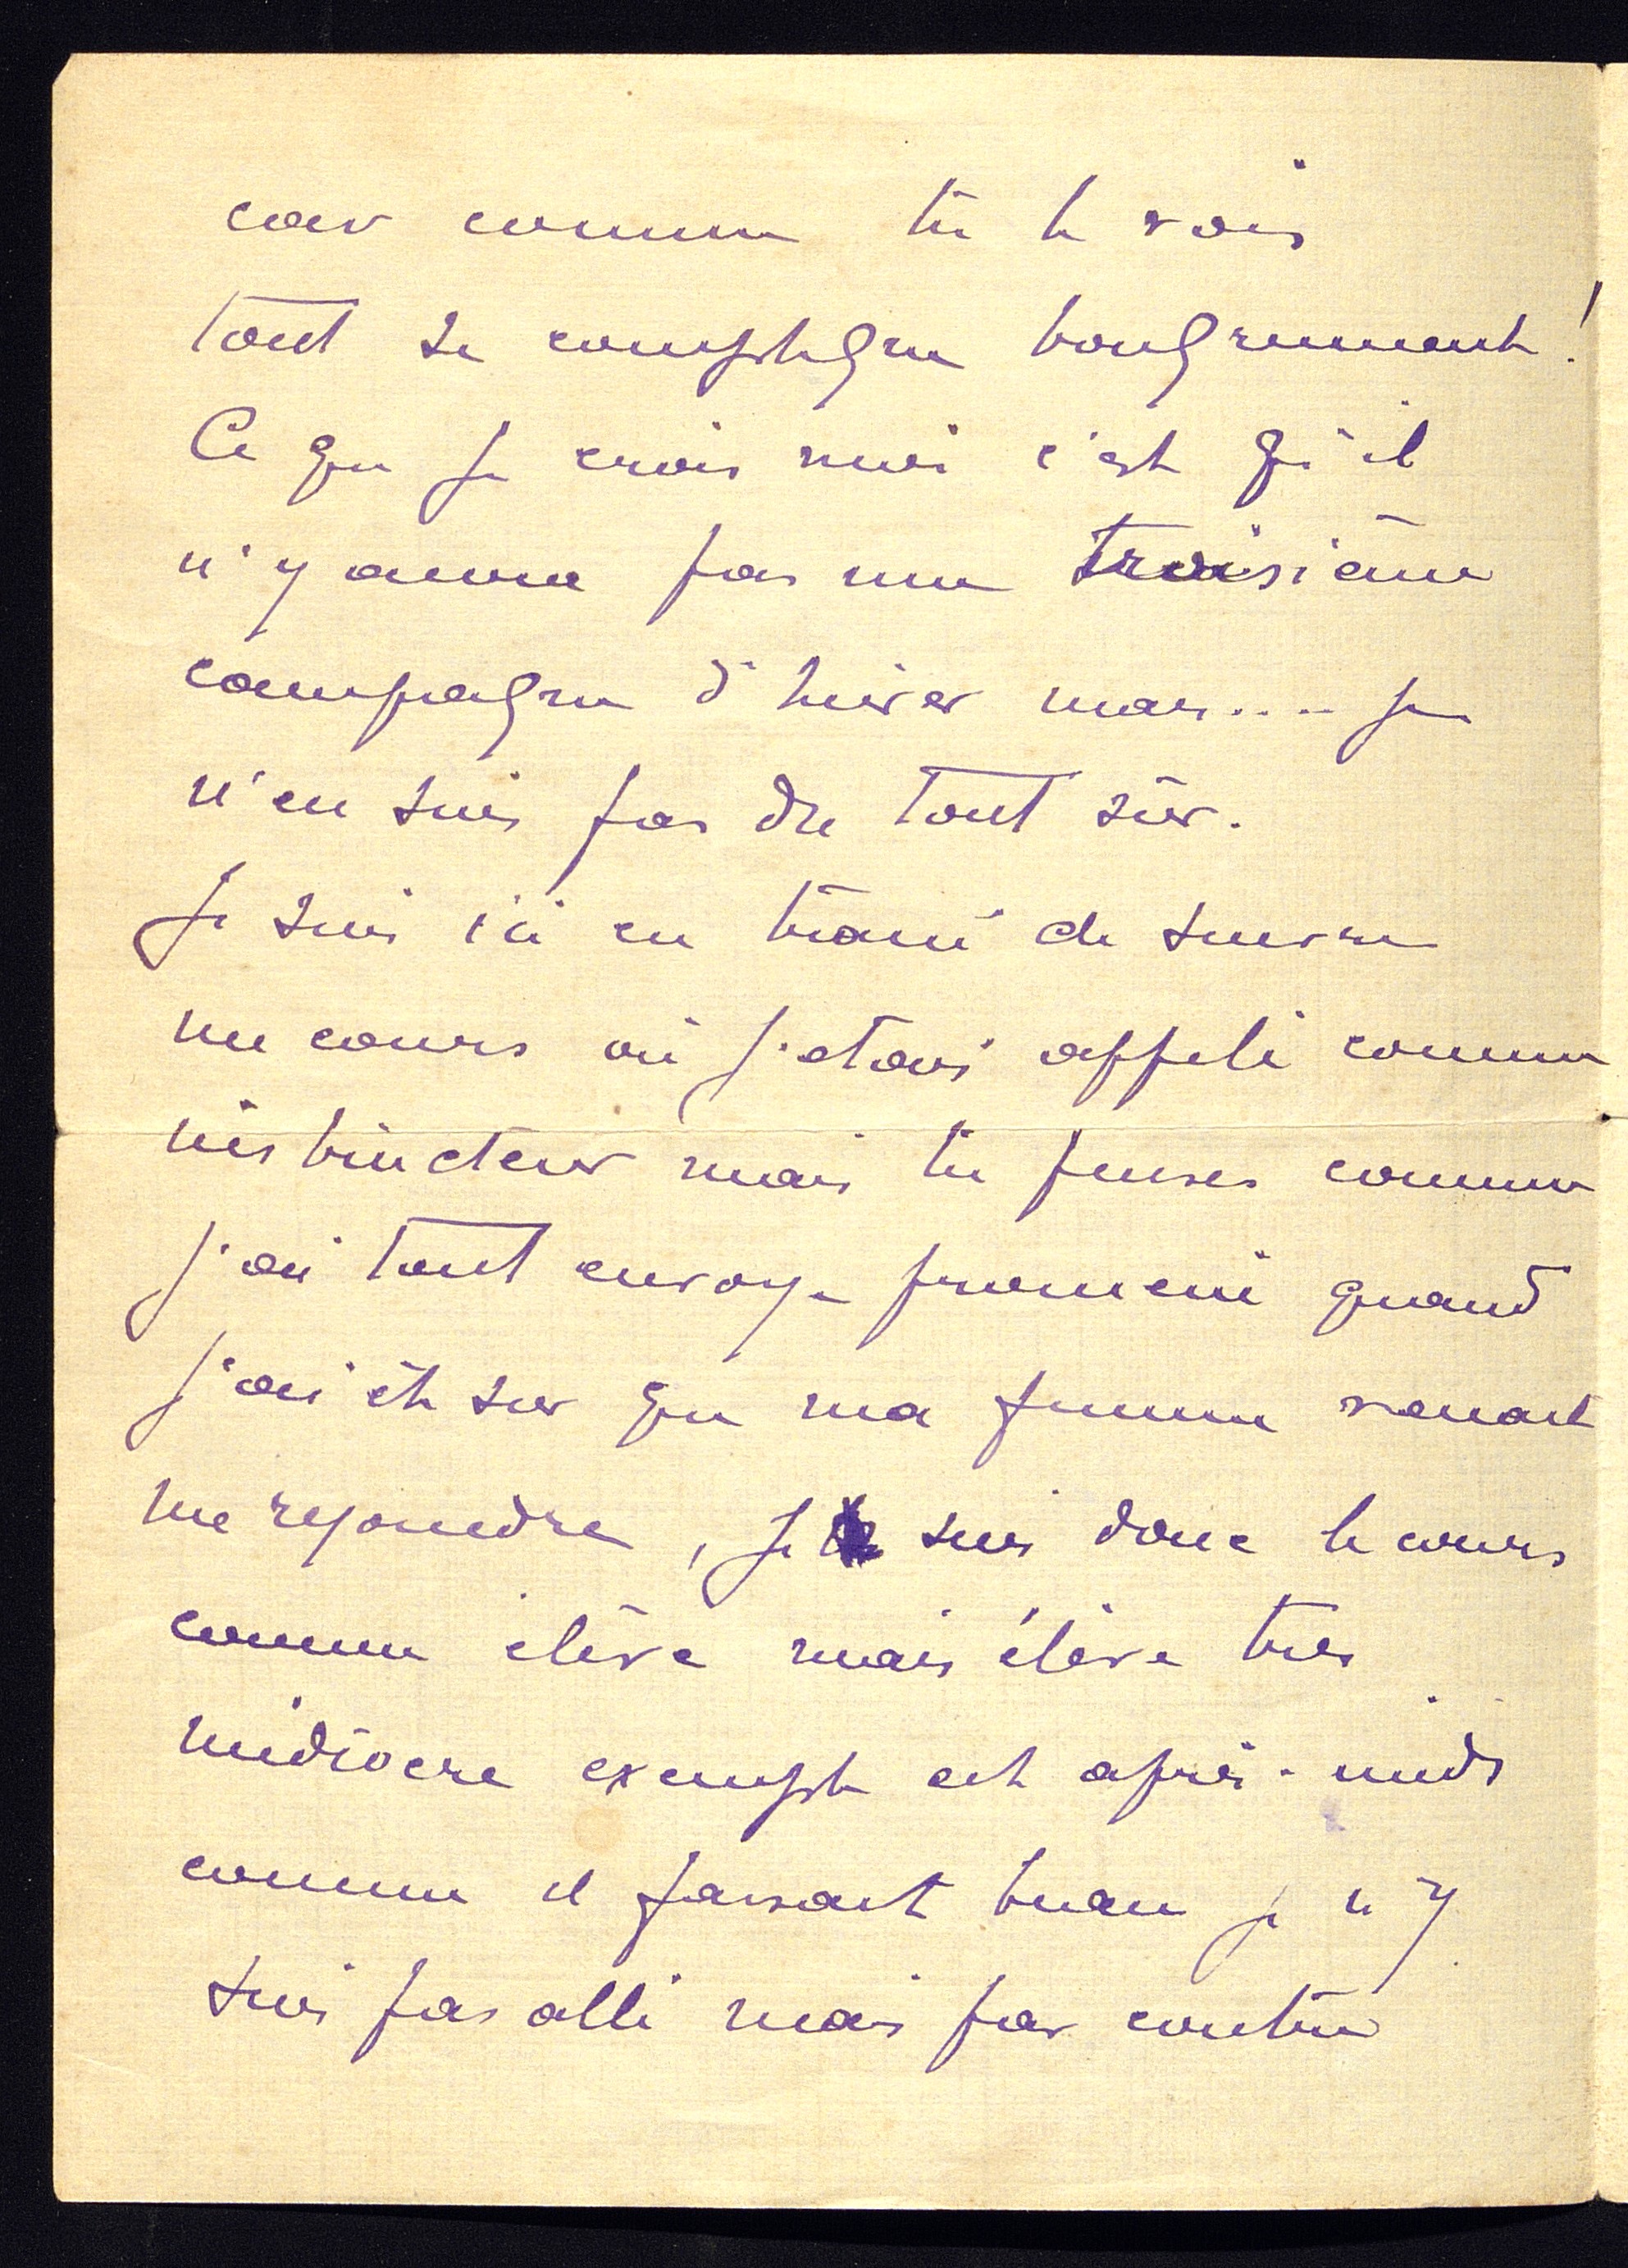 car comme tu le vois
tout se complique bougrement !
Ce que je crois moi c'est qu'il
n'y aura pas une troisième
campagne d'hiver mais.... je
n'en suis pas du tout sûr.
Je suis ici en train de suivre
un cours où j'étais appelé comme
instructeur mais tu penses comme
j'ai tout envoyé promené quand
j'ai été sur que ma femme venait
me rejoindre, je suis donc le cours
comme élève mais élève très
médiocre exemple cet après-midi
comme il faisait beau je n'y
suis pas allé mais par contre